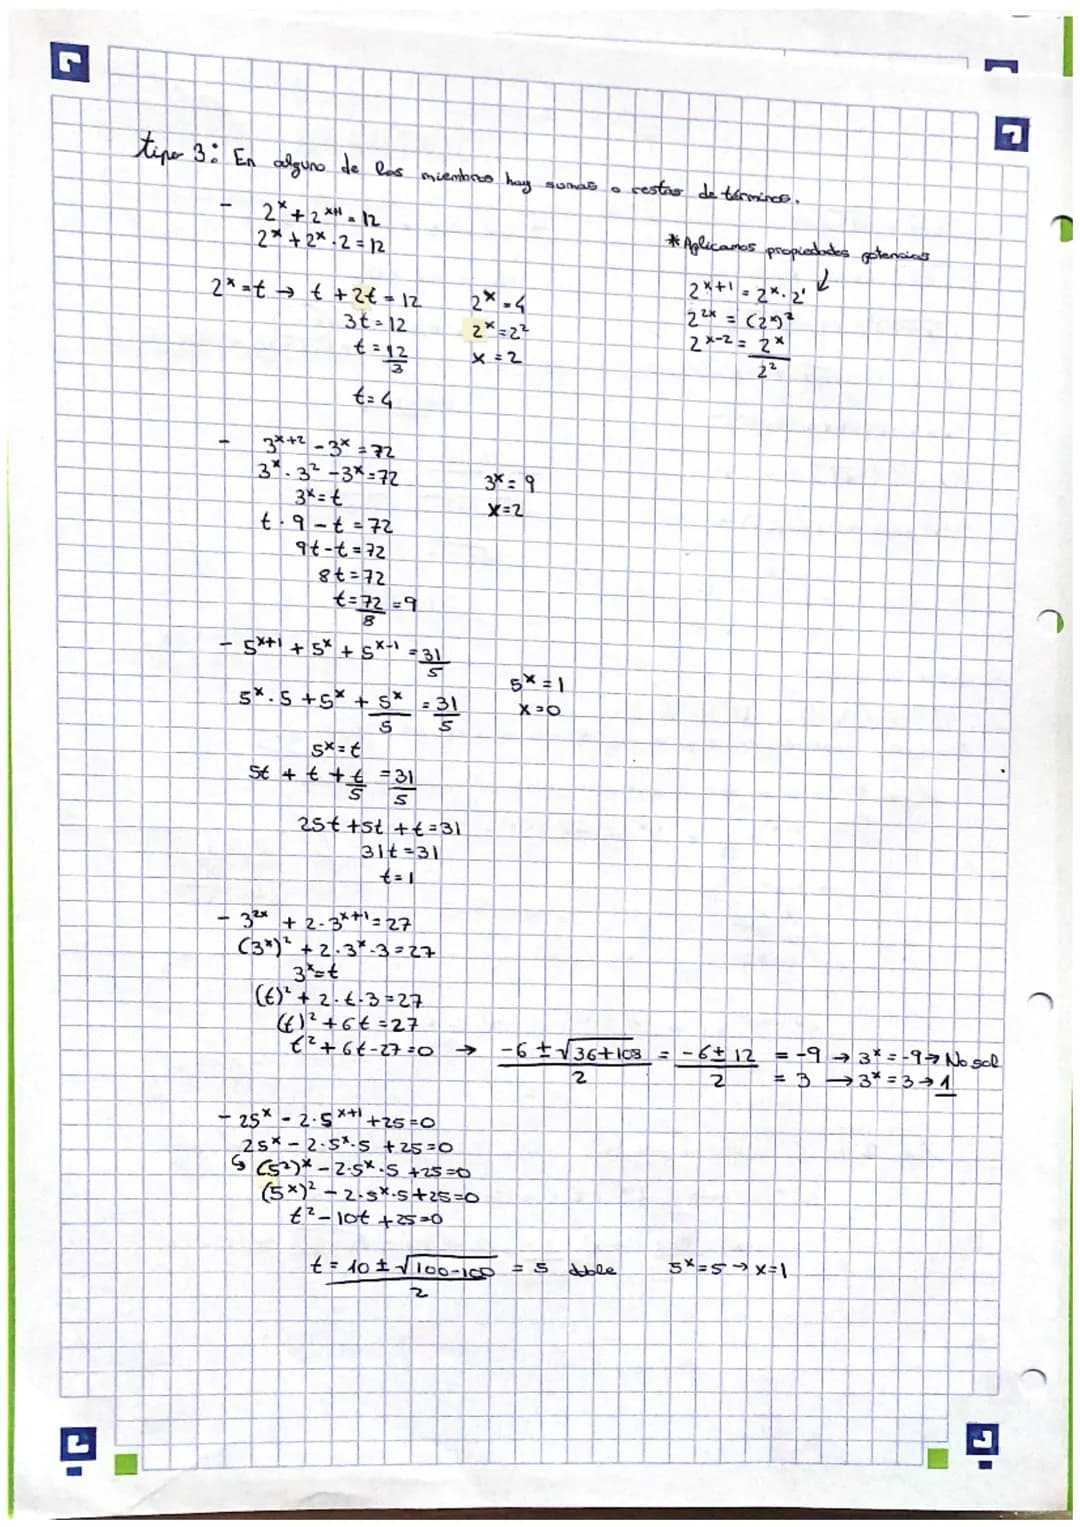 tipo 3: En alguno de los miembros hay sumas o restas de términos.
- 2ˣ + 2ˣ⁺¹ = 12
2ˣ + 2ˣ · 2 = 12
2ˣ = t → t + 2t = 12
3t = 12
t = 12/3
t = 4
2ˣ = 4
2ˣ = 2²
x = 2
* Aplicamos propiedades potencias
↓
2ˣ⁺¹ = 2ˣ · 2¹
2²ˣ = (2ˣ)²
2ˣ⁻² = 2ˣ/2²
- 3ˣ⁺² - 3ˣ = 72
3ˣ · 3² - 3ˣ = 72
3ˣ = t
t · 9 - t = 72
9t - t = 72
8t = 72
t = 72/8 = 9
3ˣ = 9
x = 2
- 5ˣ⁺¹ + 5ˣ + 5ˣ⁻¹ = 31/5
5ˣ · 5 + 5ˣ + 5ˣ/5 = 31/5
5ˣ = t
5t + t + t/5 = 31/5
25t + 5t + t = 31
31t = 31
t = 1
5ˣ = 1
x = 0
- 3²ˣ + 2 · 3ˣ⁺¹ = 27
(3ˣ)² + 2 · 3ˣ · 3 = 27
3ˣ = t
(t)² + 2 · t · 3 = 27
(t)² + 6t = 27
t² + 6t - 27 = 0 → (-6 ± √(36+108))/2 = (-6 ± 12)/2 = -9 → 3ˣ = -9 → No sol
= 3 → 3ˣ = 3 → 1
- 25ˣ - 2 · 5ˣ⁺¹ + 25 = 0
25ˣ - 2 · 5ˣ · 5 + 25 = 0
↳ (5²)ˣ - 2 · 5ˣ · 5 + 25 = 0
(5ˣ)² - 2 · 5ˣ · 5 + 25 = 0
t² - 10t + 25 = 0
t = (10 ± √(100-100))/2 = 5 doble 5ˣ = 5 → x = 1